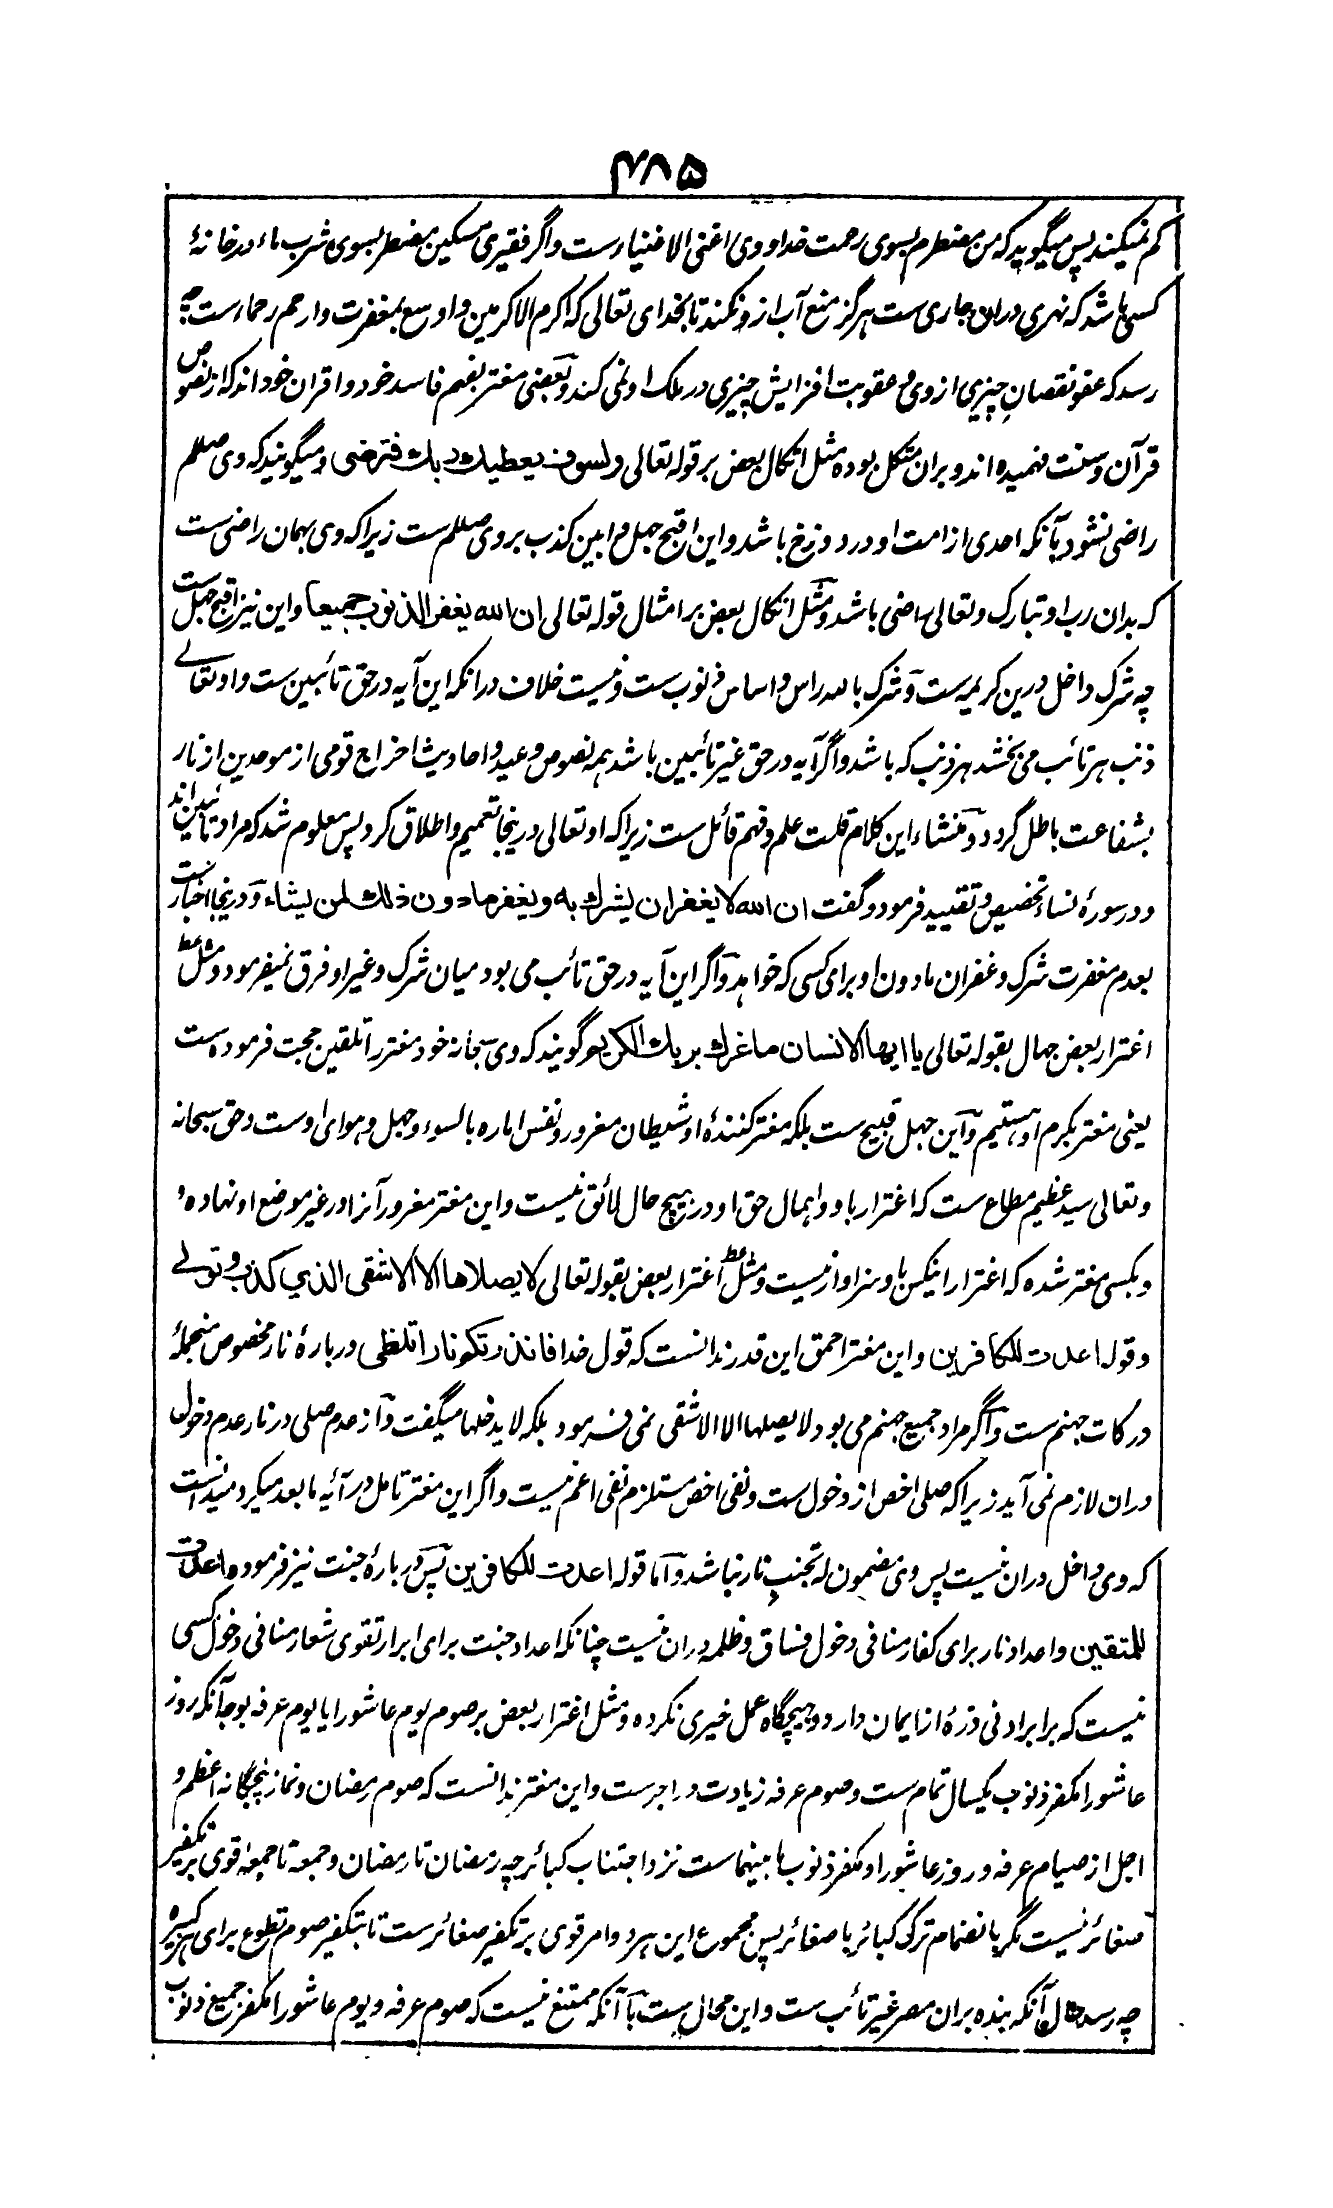 ۴۸۵
کم نمیکند پس میگوید که من مضطرم بسوی رحمت خدا و وی اغنی الاغنیاء ست و اگر فقیری مسکین مضطر بسوی شرب ماء در خانهٔ
کسی باشد که نهری دران جاری ست هرگز منع آب ازو نکند تا بخدای تعالی که اکرم الاکرمین و اوسع بمغفرت و ارحم رحماء ست چه
رسد که عفو نقصان چیزی از وی و عقوبت افزایش چیزی در ملک او نمی کند و بعضی مغتر بفهم فاسد خود و اقران خود اند که از نصوص
قرآن و سنت فهمیده اند و بران متکل بوده مثل اتکال بعض بر قوله تعالی ولسوف يعطيك ربك فترضى و میگویند که وی صللم
راضی نشود بآنکه احدی از امت او در دوزخ باشد و این اقبح جهل و ابین کذب بر وی صللم ست زیرا که وی بهمان راضی ست
که بدان رب او تبارک و تعالی راضی باشد و مثل اتکال بعض بر امثال قوله تعالی ان الله يغفر الذنوب جميعا و این نیز اقبح جهل ست
چه شرک داخل درین کریمه ست و شرک بالله راس و اساس ذنوب ست و نیست خلاف درانکه این آیه در حق تائبین ست و او تعالے
ذنب هر تائب می بخشد هر ذنب که باشد و اگر آیه در حق غیر تائبین باشد همه نصوص وعید و احادیث اخراج قومی از موحدین از نار
بشفاعت باطل گردد و منشاء این کلام قلت علم و فهم قائل ست زیرا که او تعالی درینجا تعمیم و اطلاق کرد پس معلوم شد که مراد تائبین اند
و در سورهٔ نساء تخصیص و تقیید فرمود و گفت ان الله لا يغفر ان يشرك به ويغفر ما دون ذلك لمن يشاء و درینجا اخبار ست
بعدم مغفرت شرک و غفران مادون او برای کسی که خواهد و اگر این آیه در حق تائب می بود میان شرک و غیر او فرق نمیفرمود و مثل
اغترار بعض جهال بقوله تعالی يا ايها الانسان ما غرك بربك الكريم گویند که وی سبحانه خود مغتر را تلقین حجت فرموده ست
یعنی مغتر بکرم او هستیم و این جهل قبیح ست بلکه مغتر کنندهٔ او شیطان مغرور و نفس اماره بالسوء و جهل و هوای اوست و حق سبحانه
و تعالی سید عظیم مطاع ست که اغترار باو و اهمال حق او در هیچ حال لائق نیست و این مغتر مغرور آنرا در غیر موضع او نهاده
و بکسی مغتر شده که اغترار اینکس باو سزاوار نیست و مثل اغترار بعض بقوله تعالی لا يصلاها الا الاشقى الذي كذب وتولى
و قوله اعدت للكافرين و این مغتر احمق این قدر ندانست که قول خدا فانذرتكم نارا تلظى در بارهٔ نار مخصوص منجملهٔ
درکات جهنم ست و اگر مراد جمیع جهنم می بود لا یصلها الا الاشقی نمی فرمود بلکه لا یدخلها میگفت و از عدم صلی در نار عدم دخول
دران لازم نمی آید زیرا که صلی اخص از دخول ست و نفی اخص مستلزم نفی اعم نیست و اگر این مغتر تامل در آیهٔ ما بعد میکرد میدانست
که وی داخل دران نیست پس وی مضمون له تجنب نار نباشد و اما قوله اعدت للكافرين پس در بارهٔ جنت نیز فرموده اعدت
للمتقين و اعداد نار برای کفار منافی دخول فساق و ظلمه دران نیست چنانکه اعداد جنت برای ابرار تقوی شعار منافی دخول کسی
نیست که برابر ادنی ذرهٔ از ایمان دارد و هیچگاه عمل خیری نکرده و مثل اغترار بعض بر صوم یوم عاشورا یا یوم عرفه بوجه آنکه روز
عاشورا مکفر ذنوب یکسال تمام ست و صوم عرفه زیادت در اجر ست و این مغتر ندانست که صوم رمضان و نماز پنجگانه اعظم و
اجل از صیام عرفه و روز عاشورا و مکفر ذنوب ما بینهما ست نزد اجتناب کبائر چه رمضان تا رمضان و جمعه تا جمعه قوی بر تکفیر
صغائر نیست مگر بانضمام ترک کبائر با صغائر پس مجموع این هر دو امر قوی بر تکفیر صغائر ست تا بتکفیر صوم تطوع برای هر کبیره
چه رسد حال آنکه بنده بران مصر غیر تائب ست و این محال ست با آنکه ممتنع نیست که صوم عرفه و یوم عاشورا مکفر جمیع ذنوب